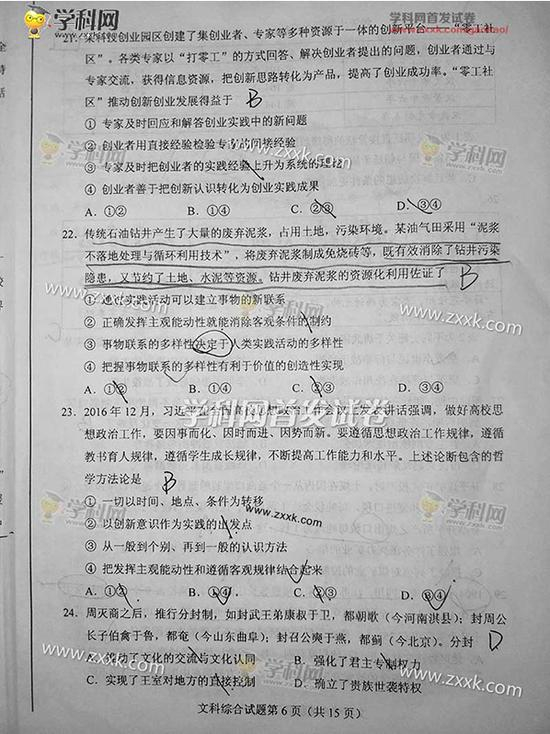 学科网首发试卷
21. 某科技创业园区创建了集创业者、专家等多种资源于一体的创新平台——“零工社
区”。各类专家以“打零工”的方式回答、解决创业者提出的问题，创业者通过与
专家交流，获得信息资源，把创新思路转化为产品，提高了创业成功率。“零工社
区”推动创新创业发展得益于 B
① 专家及时回应和解答创业实践中的新问题
② 创业者用直接经验检验专家的间接经验
③ 专家及时把创业者的实践经验上升为系统的理论
④ 创业者善于把创新认识转化为创业实践成果
A. ①② B. ①④ C. ②③ D. ③④
22. 传统石油钻井产生了大量的废弃泥浆，占用土地，污染环境。某油气田采用“泥浆
不落地处理与循环利用技术”，将废弃泥浆制成免烧砖等，既有效消除了钻井污染
隐患，又节约了土地、水泥等资源。钻井废弃泥浆的资源化利用佐证了 B
① 通过实践活动可以建立事物的新联系
② 正确发挥主观能动性就能消除客观条件的制约
③ 事物联系的多样性决定于人类实践活动的多样性
④ 把握事物联系的多样性有利于价值的创造性实现
A. ①② B. ①④ C. ②③ D. ③④
23. 2016 年 12 月，习近平在全国高校思想政治工作会议上发表讲话强调，做好高校思
想政治工作，要因事而化、因时而进、因势而新。要遵循思想政治工作规律，遵循
教书育人规律，遵循学生成长规律，不断提高工作能力和水平。上述论断包含的哲
学方法论是 B
① 一切以时间、地点、条件为转移
② 以创新意识作为实践的出发点
③ 从一般到个别、再到一般的认识方法
④ 把发挥主观能动性和遵循客观规律结合起来
A. ①② B. ①④ C. ②③ D. ③④
24. 周灭商之后，推行分封制，如封武王弟康叔于卫，都朝歌（今河南淇县）；封周公
长子伯禽于鲁，都奄（今山东曲阜）；封召公奭于燕，都蓟（今北京）。分封 D
A. 推动了文化的交流与文化认同 B. 强化了君主专制权力
C. 实现了王室对地方的直接控制 D. 确立了贵族世袭特权
文科综合试题第 6 页（共 15 页）
学科网
www.zxxk.com